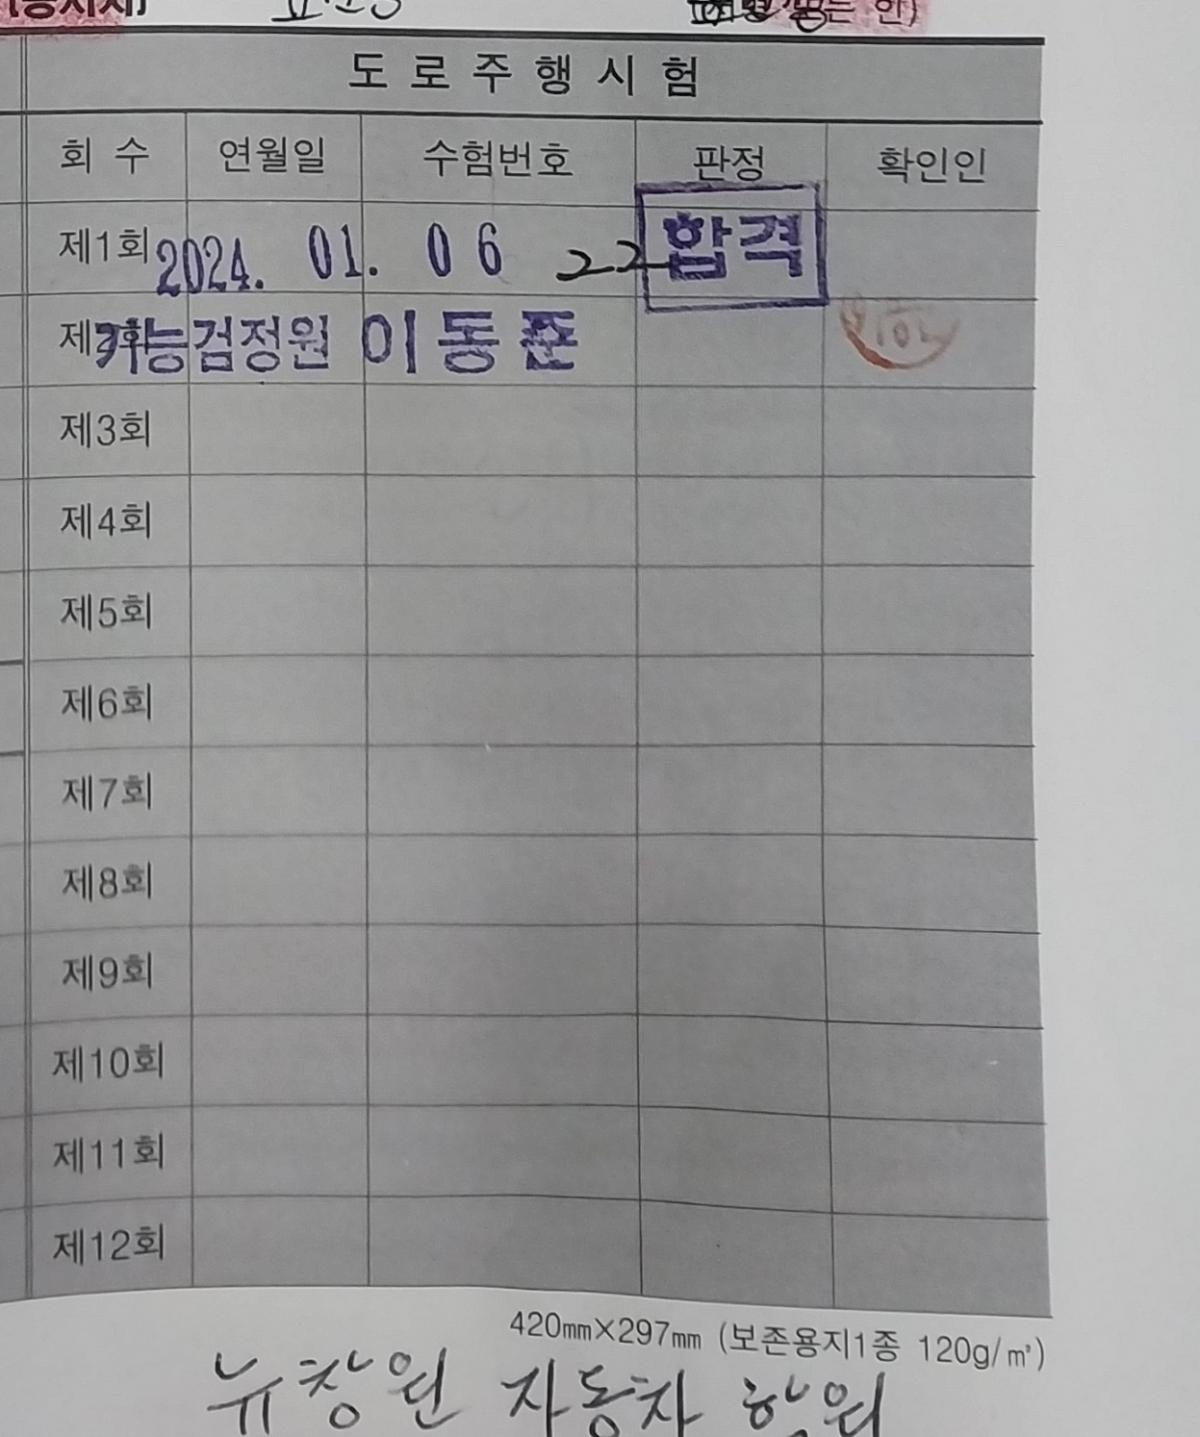 도로주행시험
회 수 연월일 수험번호 판정 확인인
제1회 2024. 01. 06 22 합격
제2회 기능검정원 이동준
제3회
제4회
제5회
제6회
제7회
제8회
제9회
제10회
제11회
제12회
420mm×297mm (보존용지1종 120g/㎡)
뉴창원 자동차 학원